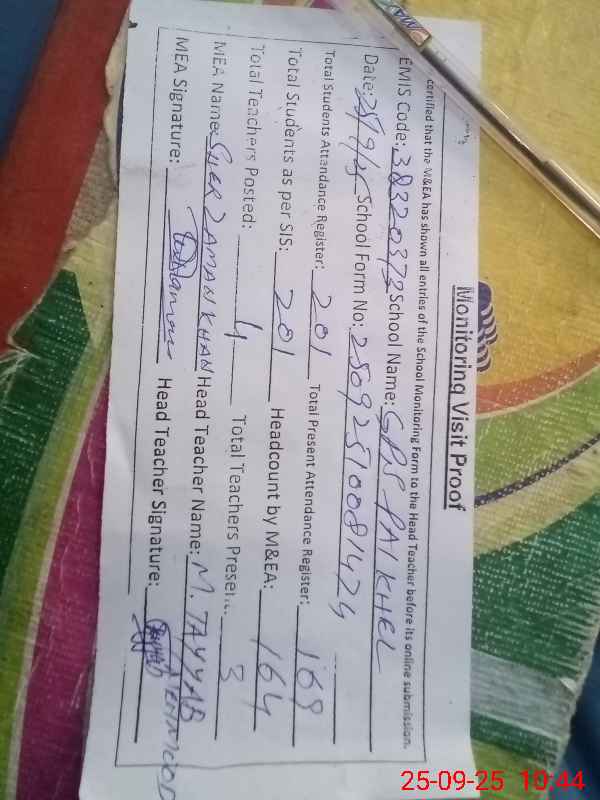 Monitoring Visit Proof
certified that the M&EA has shown all entries of the School Monitoring Form to the Head Teacher before its online submission.
EMIS Code: 38320373 School Name: GPS PAI KHEL
Date: 25/9/25 School Form No: 25092510081424
Total Students Attendance Register: 201 Total Present Attendance Register: 168
Total Students as per SIS: 201 Headcount by M&EA: 164
Total Teachers Posted: 4 Total Teachers Present: 3
MEA Name: SHER ZAMAN KHAN Head Teacher Name: M. TAYYAB
MEA Signature: Head Teacher Signature:
25-09-25 10:44